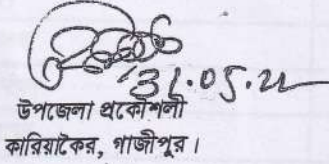 31.05.22
উপজেলা প্রকৌশলী
কারিয়াকৈর, গাজীপুর।